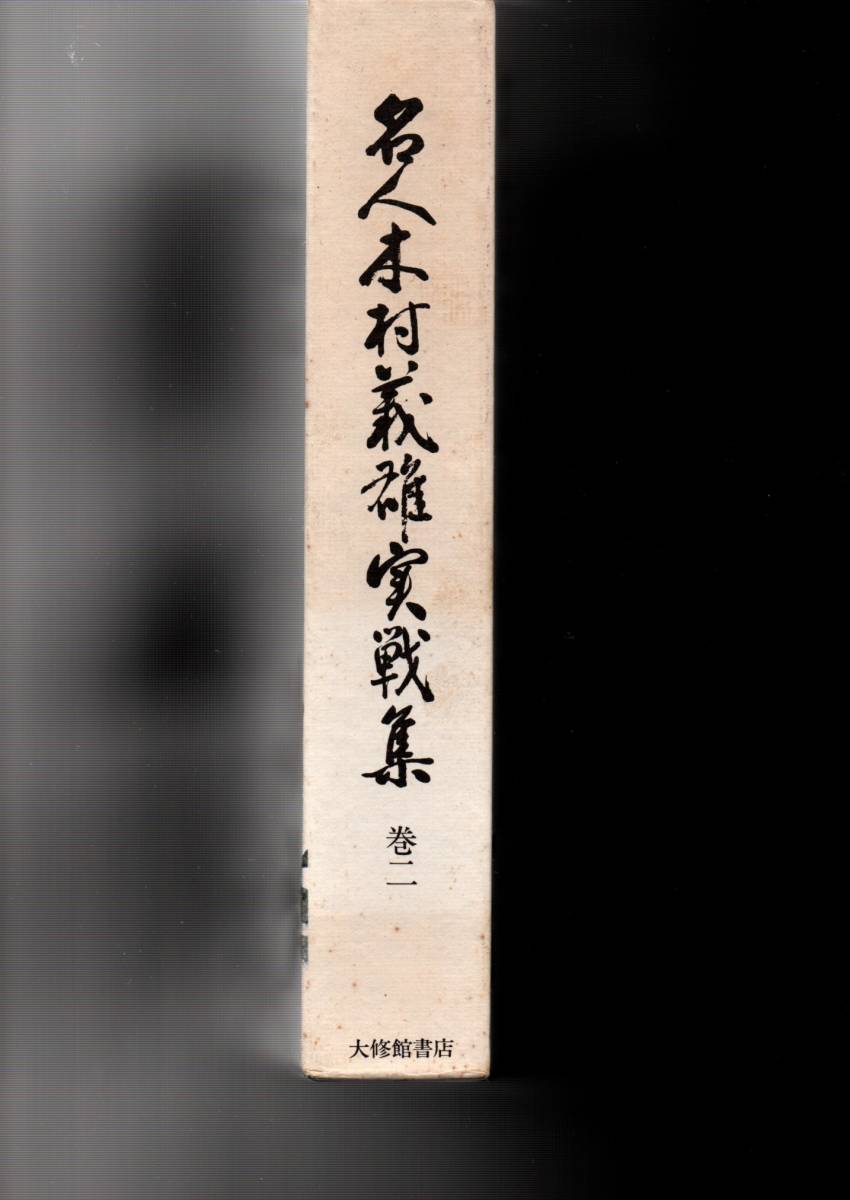 名人木村義雄実戦集
巻二
大修館書店